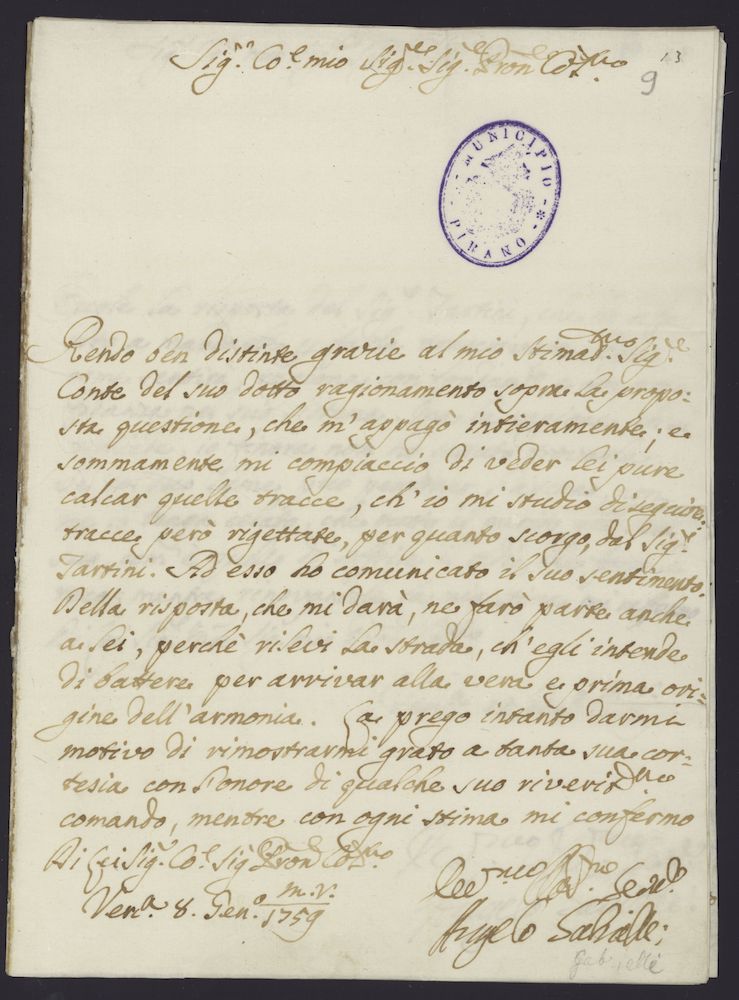 Sig.r Co: mio Sig.re Sig.re Pron Col.mo
13
9
MUNICIPIO
PIRANO
Rendo ben distinte grazie al mio stimad.mo Sig.re
Conte del suo dotto ragionamento sopra la propo:
sta questione, che m'appagò intieramente; e
sommamente mi compiaccio di veder lei pure
calcar quelle tracce, ch'io mi studio di seguire:
tracce però rigettate, per quanto scorgo, dal Sig.r
Tartini. Ad esso ho comunicato il suo sentimento.
Della risposta, che mi darà, ne farò parte anche
a lei, perchè rilevi la strada, ch'egli intende
di battere per arrivar alla vera e prima ori:
gine dell'armonia. La prego intanto darmi
motivo di rimostrarmi grato a tanta sua cor:
tesia con l'onore di qualche suo riverit.mo
comando, mentre con ogni stima mi confermo
Di Lei Sig.r Co: Sig Pron Col.mo
Ven.a 8. Gen.o m.v. 1759
Serv.
Angelo Gabrielli
Gabrielli